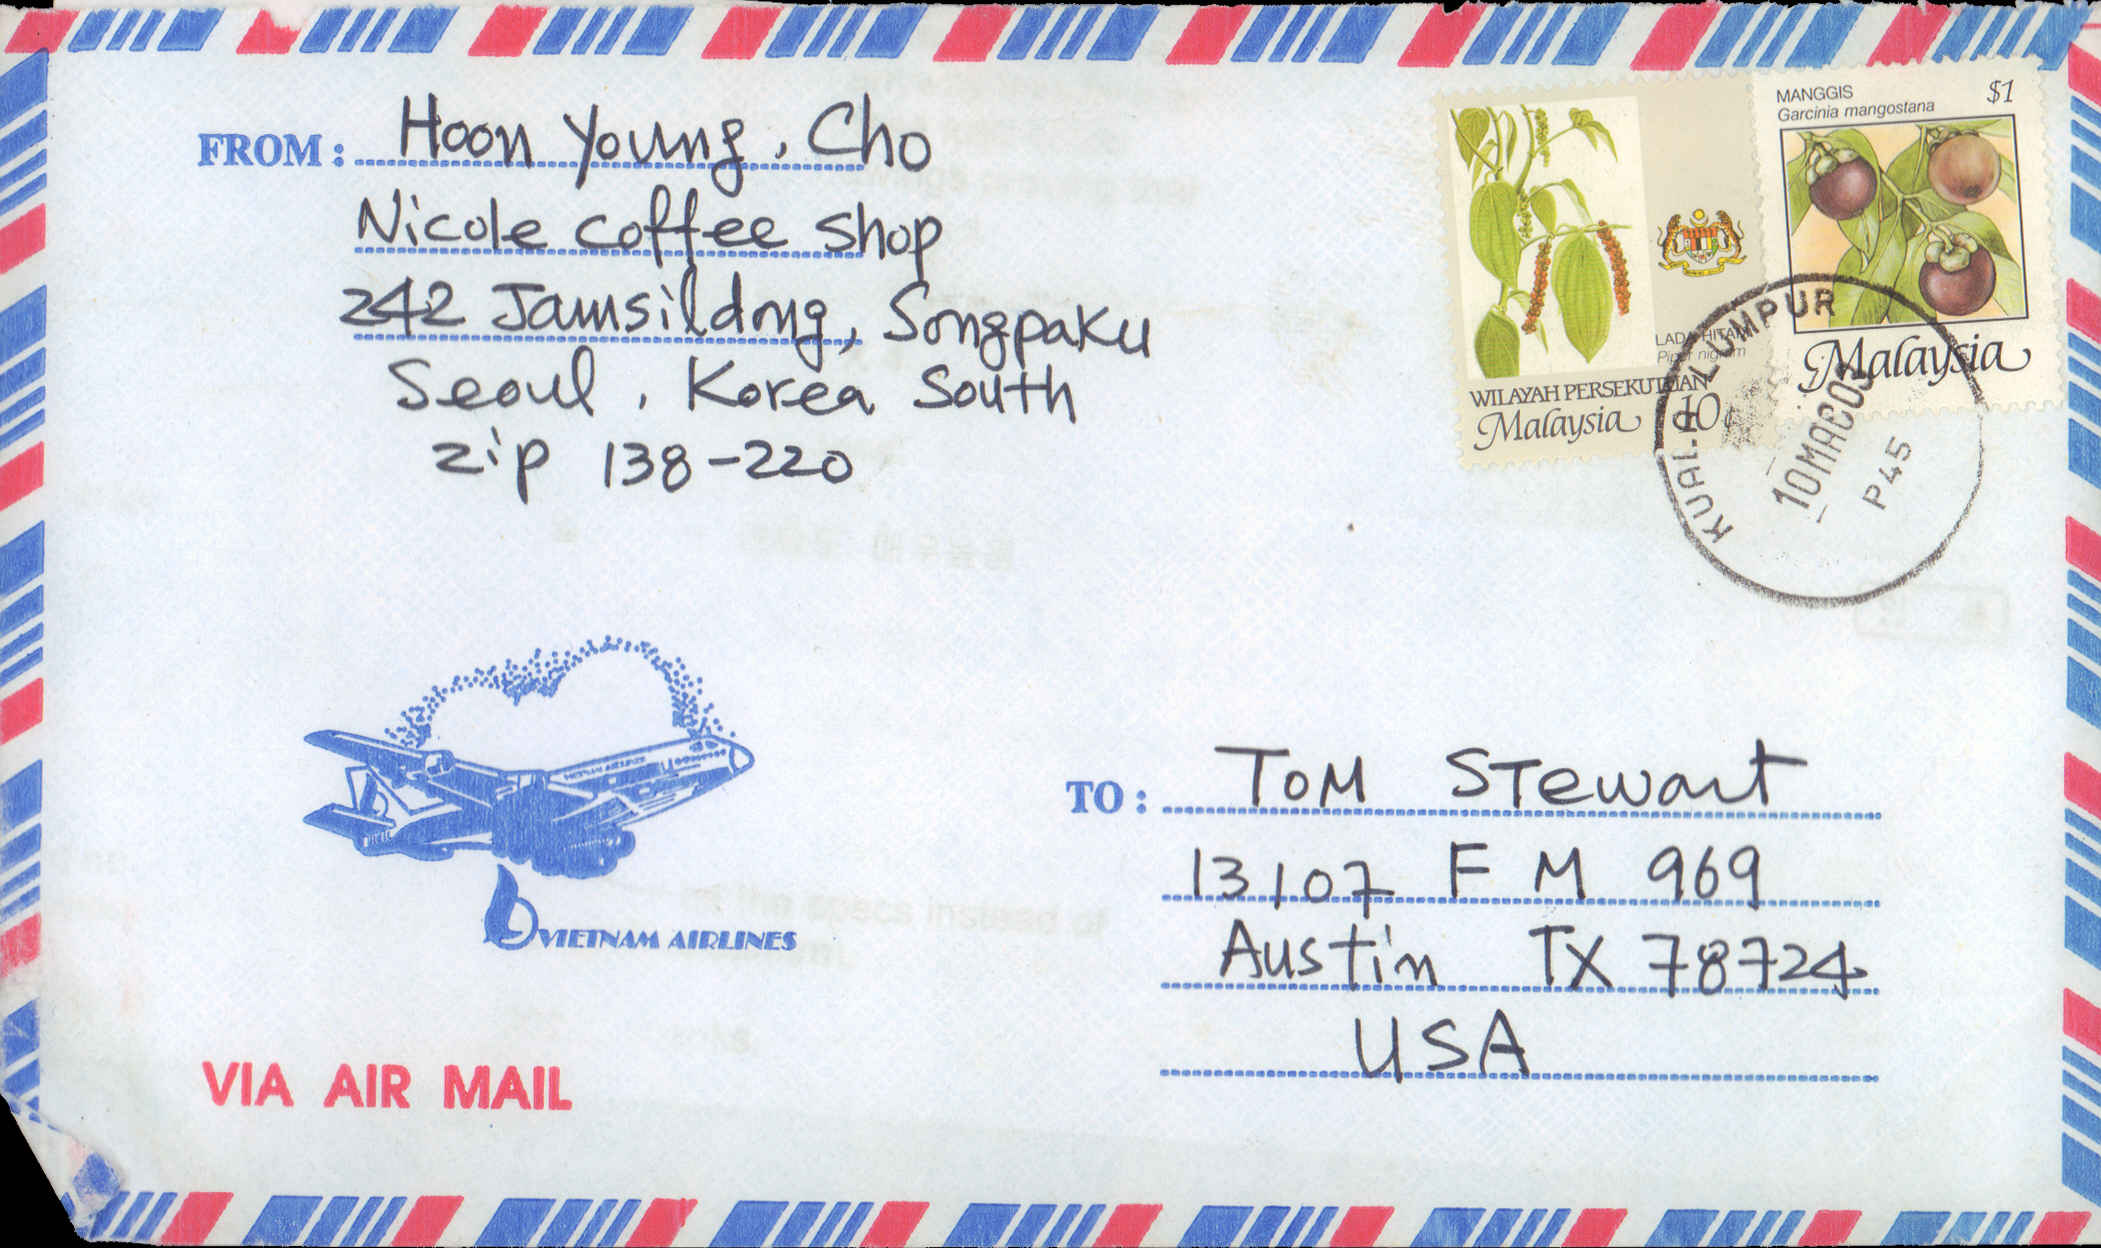 FROM: Hoon Young, Cho
Nicole coffee shop
242 Jamsildong, Songpaku
Seoul, Korea South
zip 138-220
MANGGIS $1
Garcinia mangostana
Malaysia
LADA HITAM
Piper nigrum
WILAYAH PERSEKUTUAN
Malaysia 10¢
KUALA LUMPUR
10MAC03
P45
VIETNAM AIRLINES
TO: Tom Stewart
13107 FM 969
Austin TX 78724
USA
VIA AIR MAIL